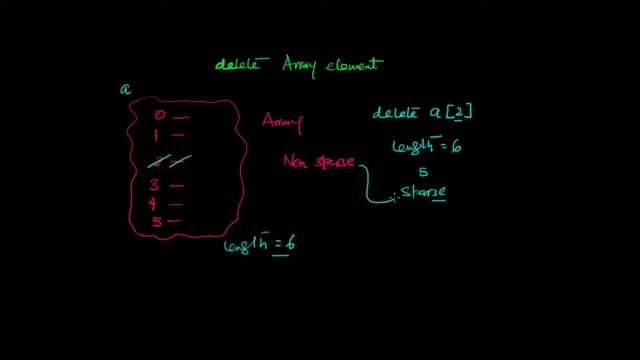 delete Array element
a
0 —
1 —
2 —
3 —
4 —
5 —
Array
Non sparse
length = 6
delete a[2]
length = 6
5
Sparse